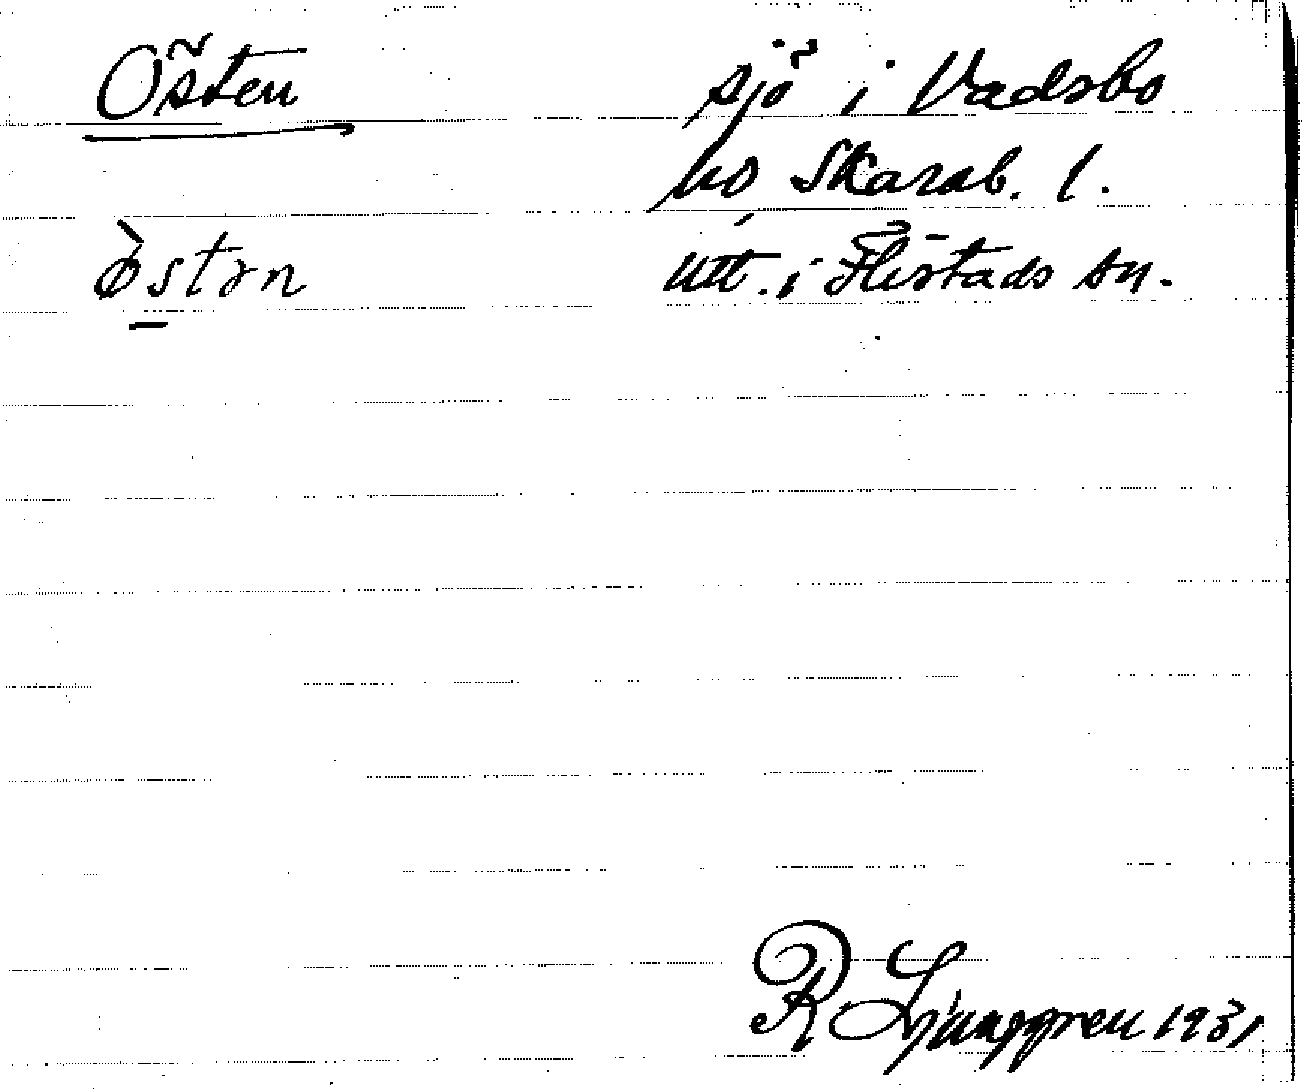 Östen sjö i Vadsbo
hd Skarab. l.
östən utt. i Flistads sn.
R Ljunggren 1931